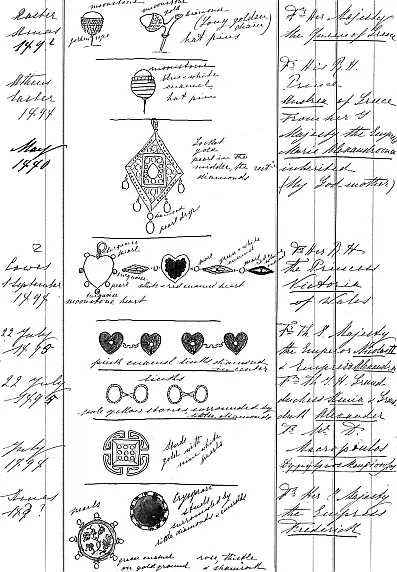 Easter
1892
moonstone
golden rope
moonstone
gold
diamond
(Long golden
chain)
hat pins
Fr Her Majesty
the Queen of Greece
Athens
Easter
1894
moonstone
blue & white
enamel
hat pin
Fr His R. H.
Prince
Andrea of Greece
May
1880
Locket
gold
pearl in the
middle, the rest
diamonds
pearl drops
From her
Majesty the Empress
Marie Alexandrovna
inherited
(My God mother)
?
Cowes
September
1894
turquoise
pearl
turquoise
pearl
turquoise
moonstone heart
white & red enamel heart
pearl
green & white
enamel
pearl
Fr Her R. H
the Princess
Victoria
of Wales
22 July
1895
pink enamel links diamond
in center
Fr Th I. Majesty
the Emperor Nicolas II
& Empress Alexandra
22 July
1895
links
pale yellow stones surrounded by
little diamonds
Fr Th I. H. Grand
duchess Xenia & Grand
duke Alexander
July
1894
Studs
gold with
nine white
pearls
Fr Mr D.
Macropoulos
Cowes
18?
pearls
green enamel
on gold ground
surrounded by
little diamonds & emeralds
rose, thistle
& shamrock
Fr Her I. Majesty
the Empress
Frederick